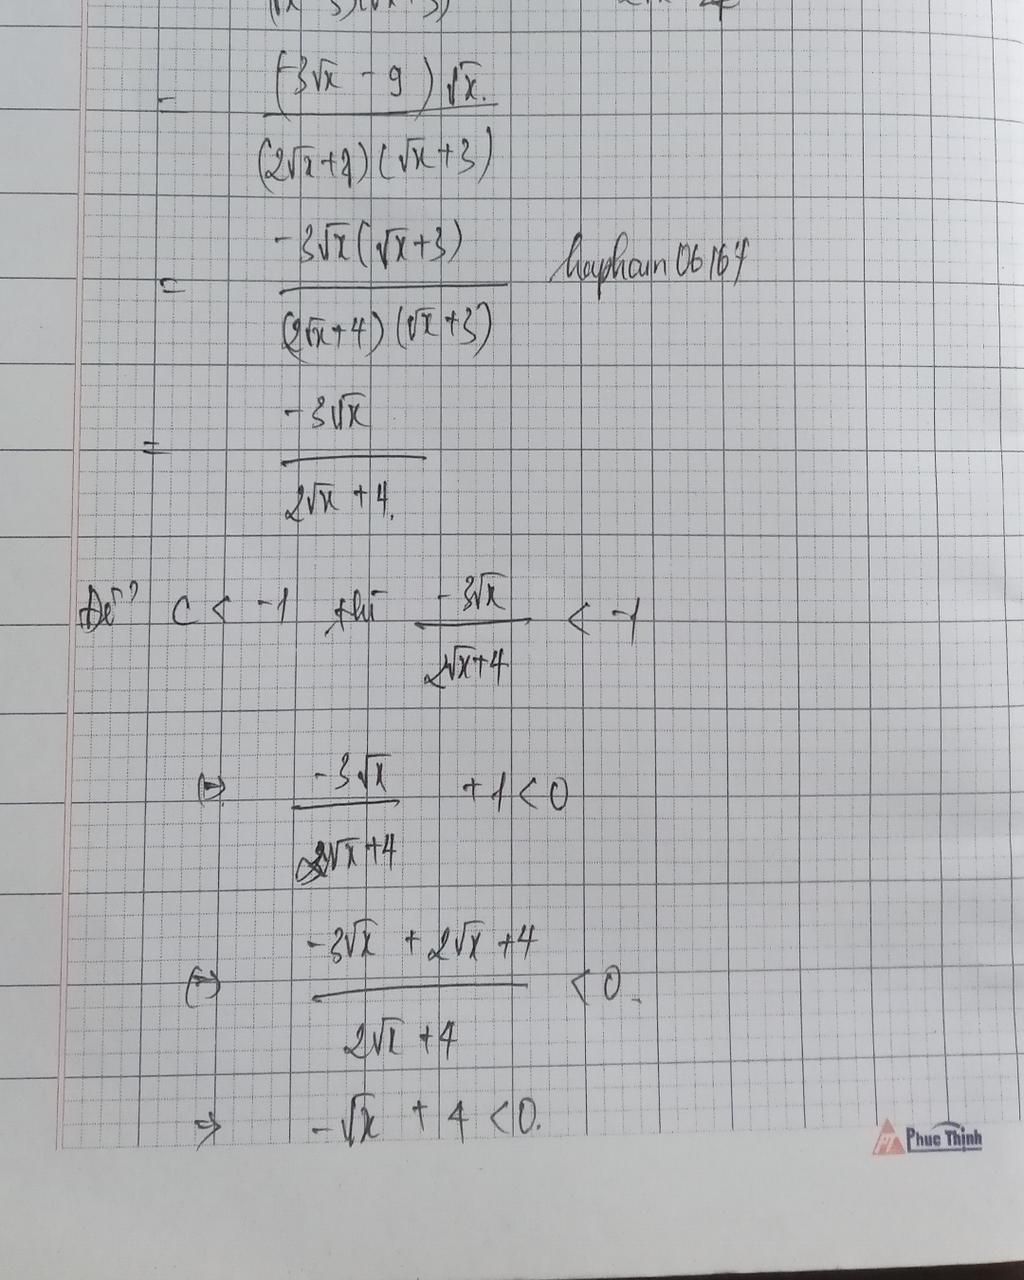 = (-3√x - 9)√x.
(2√x+4)(√x+3)
= -3√x(√x+3)
(2√x+4)(√x+3)
= -3√x
2√x + 4.
Để C < -1 thì -3√x / 2√x+4 < -1
⇔ -3√x / 2√x+4 + 1 < 0
⇔ -3√x + 2√x + 4 / 2√x + 4 < 0.
⇒ -√x + 4 < 0.
Phuc Thịnh